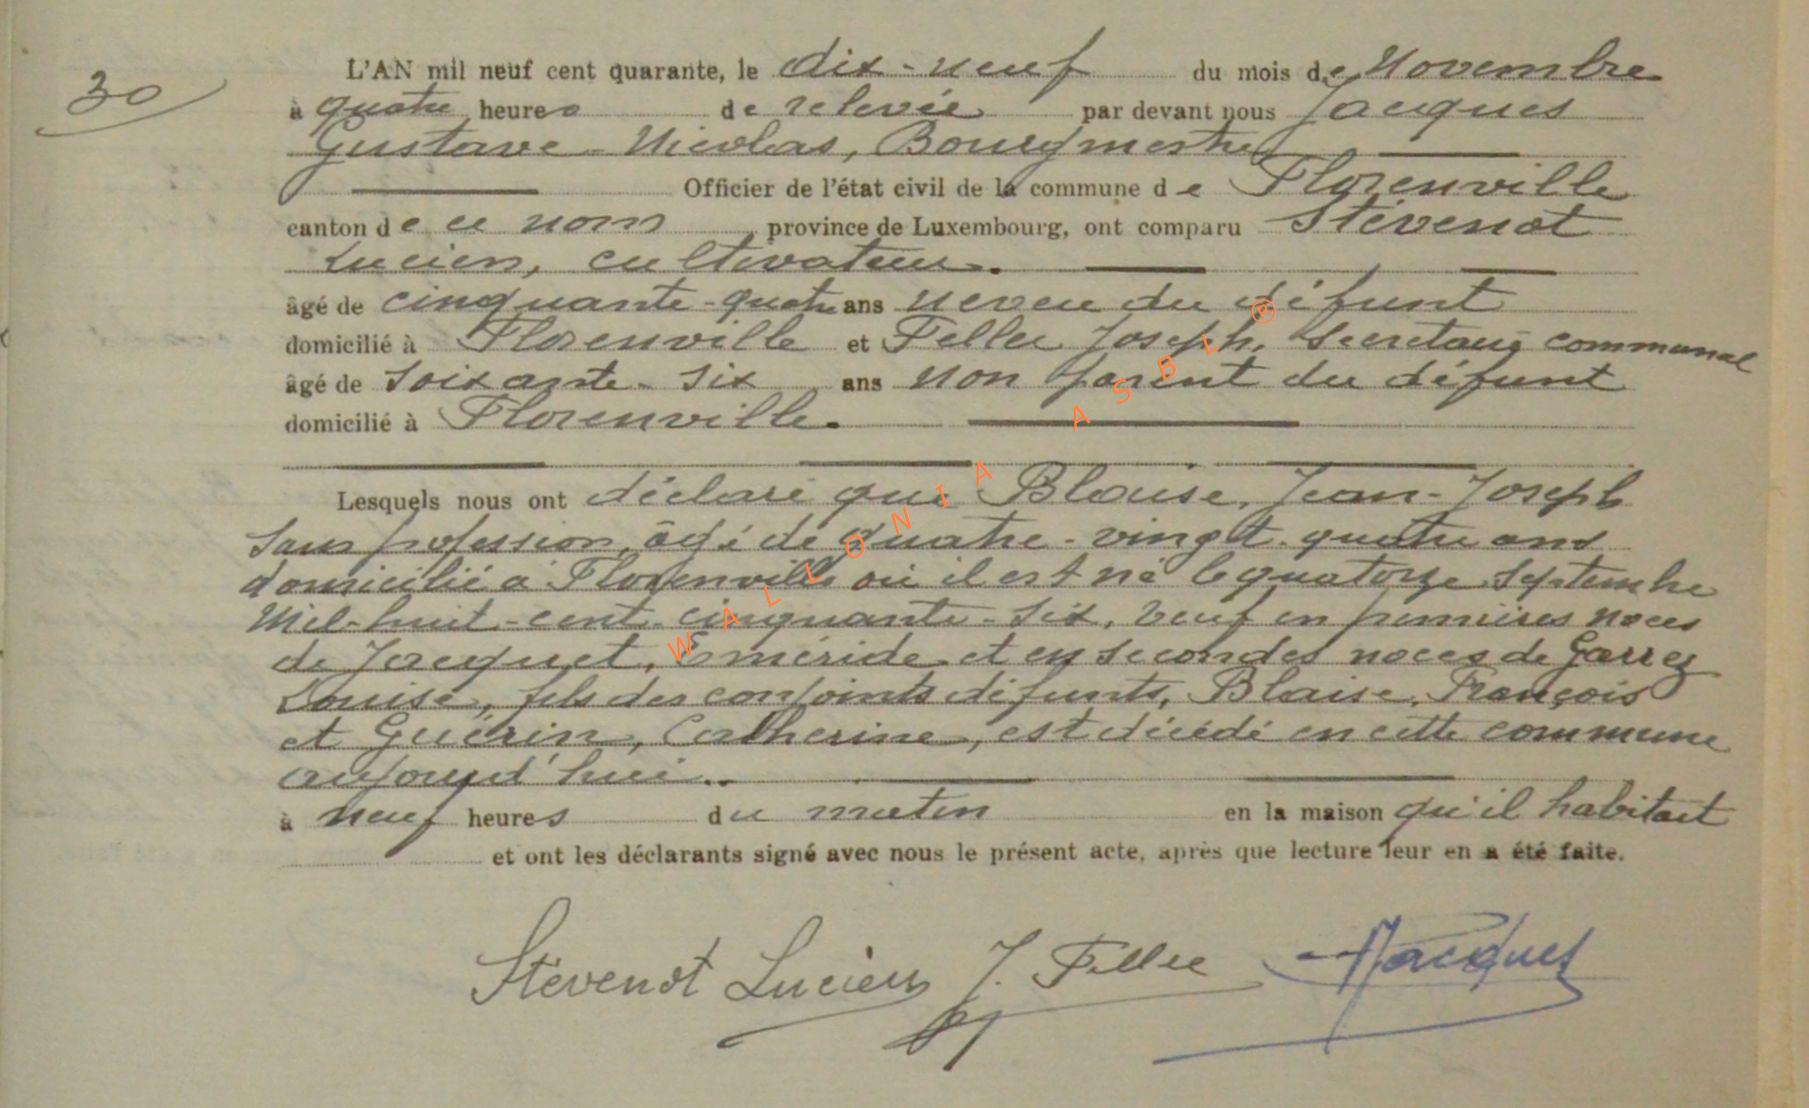 30
L'AN mil neuf cent quarante, le dix-neuf du mois de Novembre
à quatre heures de relevée par devant nous Jacques
Gustave-Nicolas, Bourgmestre
Officier de l'état civil de la commune de Florenville
canton de ce nom, province de Luxembourg, ont comparu Stévenot
Lucien, cultivateur.
âgé de cinquante-quatre ans neveu du défunt
domicilié à Florenville et Feller Joseph, Secrétaire communal
âgé de soixante-six ans non parent du défunt
domicilié à Florenville.
Lesquels nous ont déclaré que Blaise, Jean-Joseph
Sans profession, âgé de quatre-vingt-quatre ans
domicilié à Florenville où il est né le quatorze Septembre
Mil-huit-cent-cinquante-six, veuf en premières noces
de Jacquet, Eméride et en secondes noces de Garrez
Louise, fils des conjoints défunts, Blaise, François
et Guérin, Catherine, est décédé en cette commune
aujourd'hui
à neuf heures du matin en la maison qu'il habitait
et ont les déclarants signé avec nous le présent acte, après que lecture leur en a été faite.
Stévenot Lucien J. Feller Jacques
WALLONIA ASBL ®